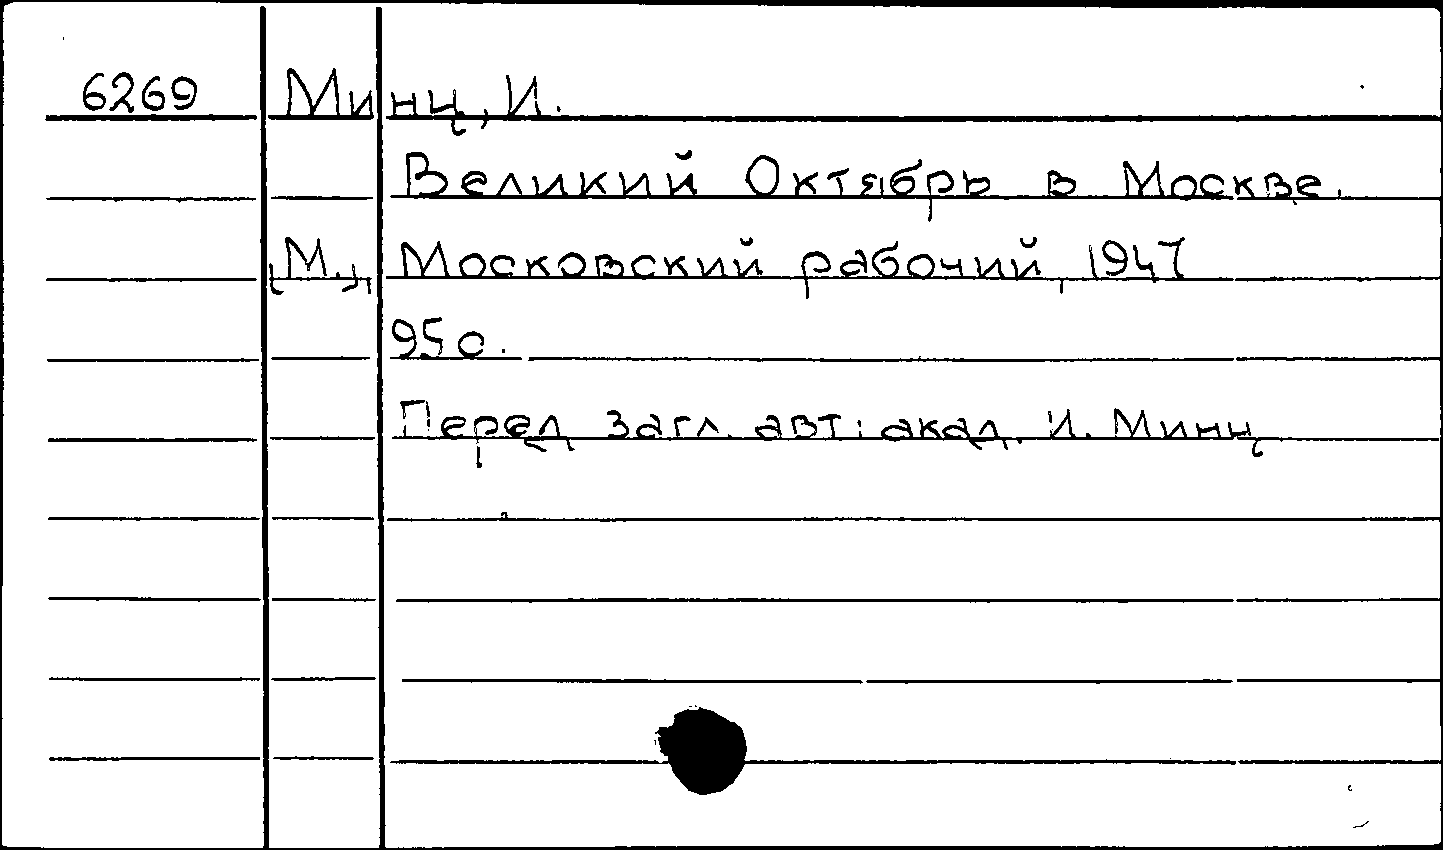 6269 Минц, И.
Великий Октябрь в Москве.
М., Московский рабочий, 1947
95 с.
Перед загл. авт: акад. И. Минц